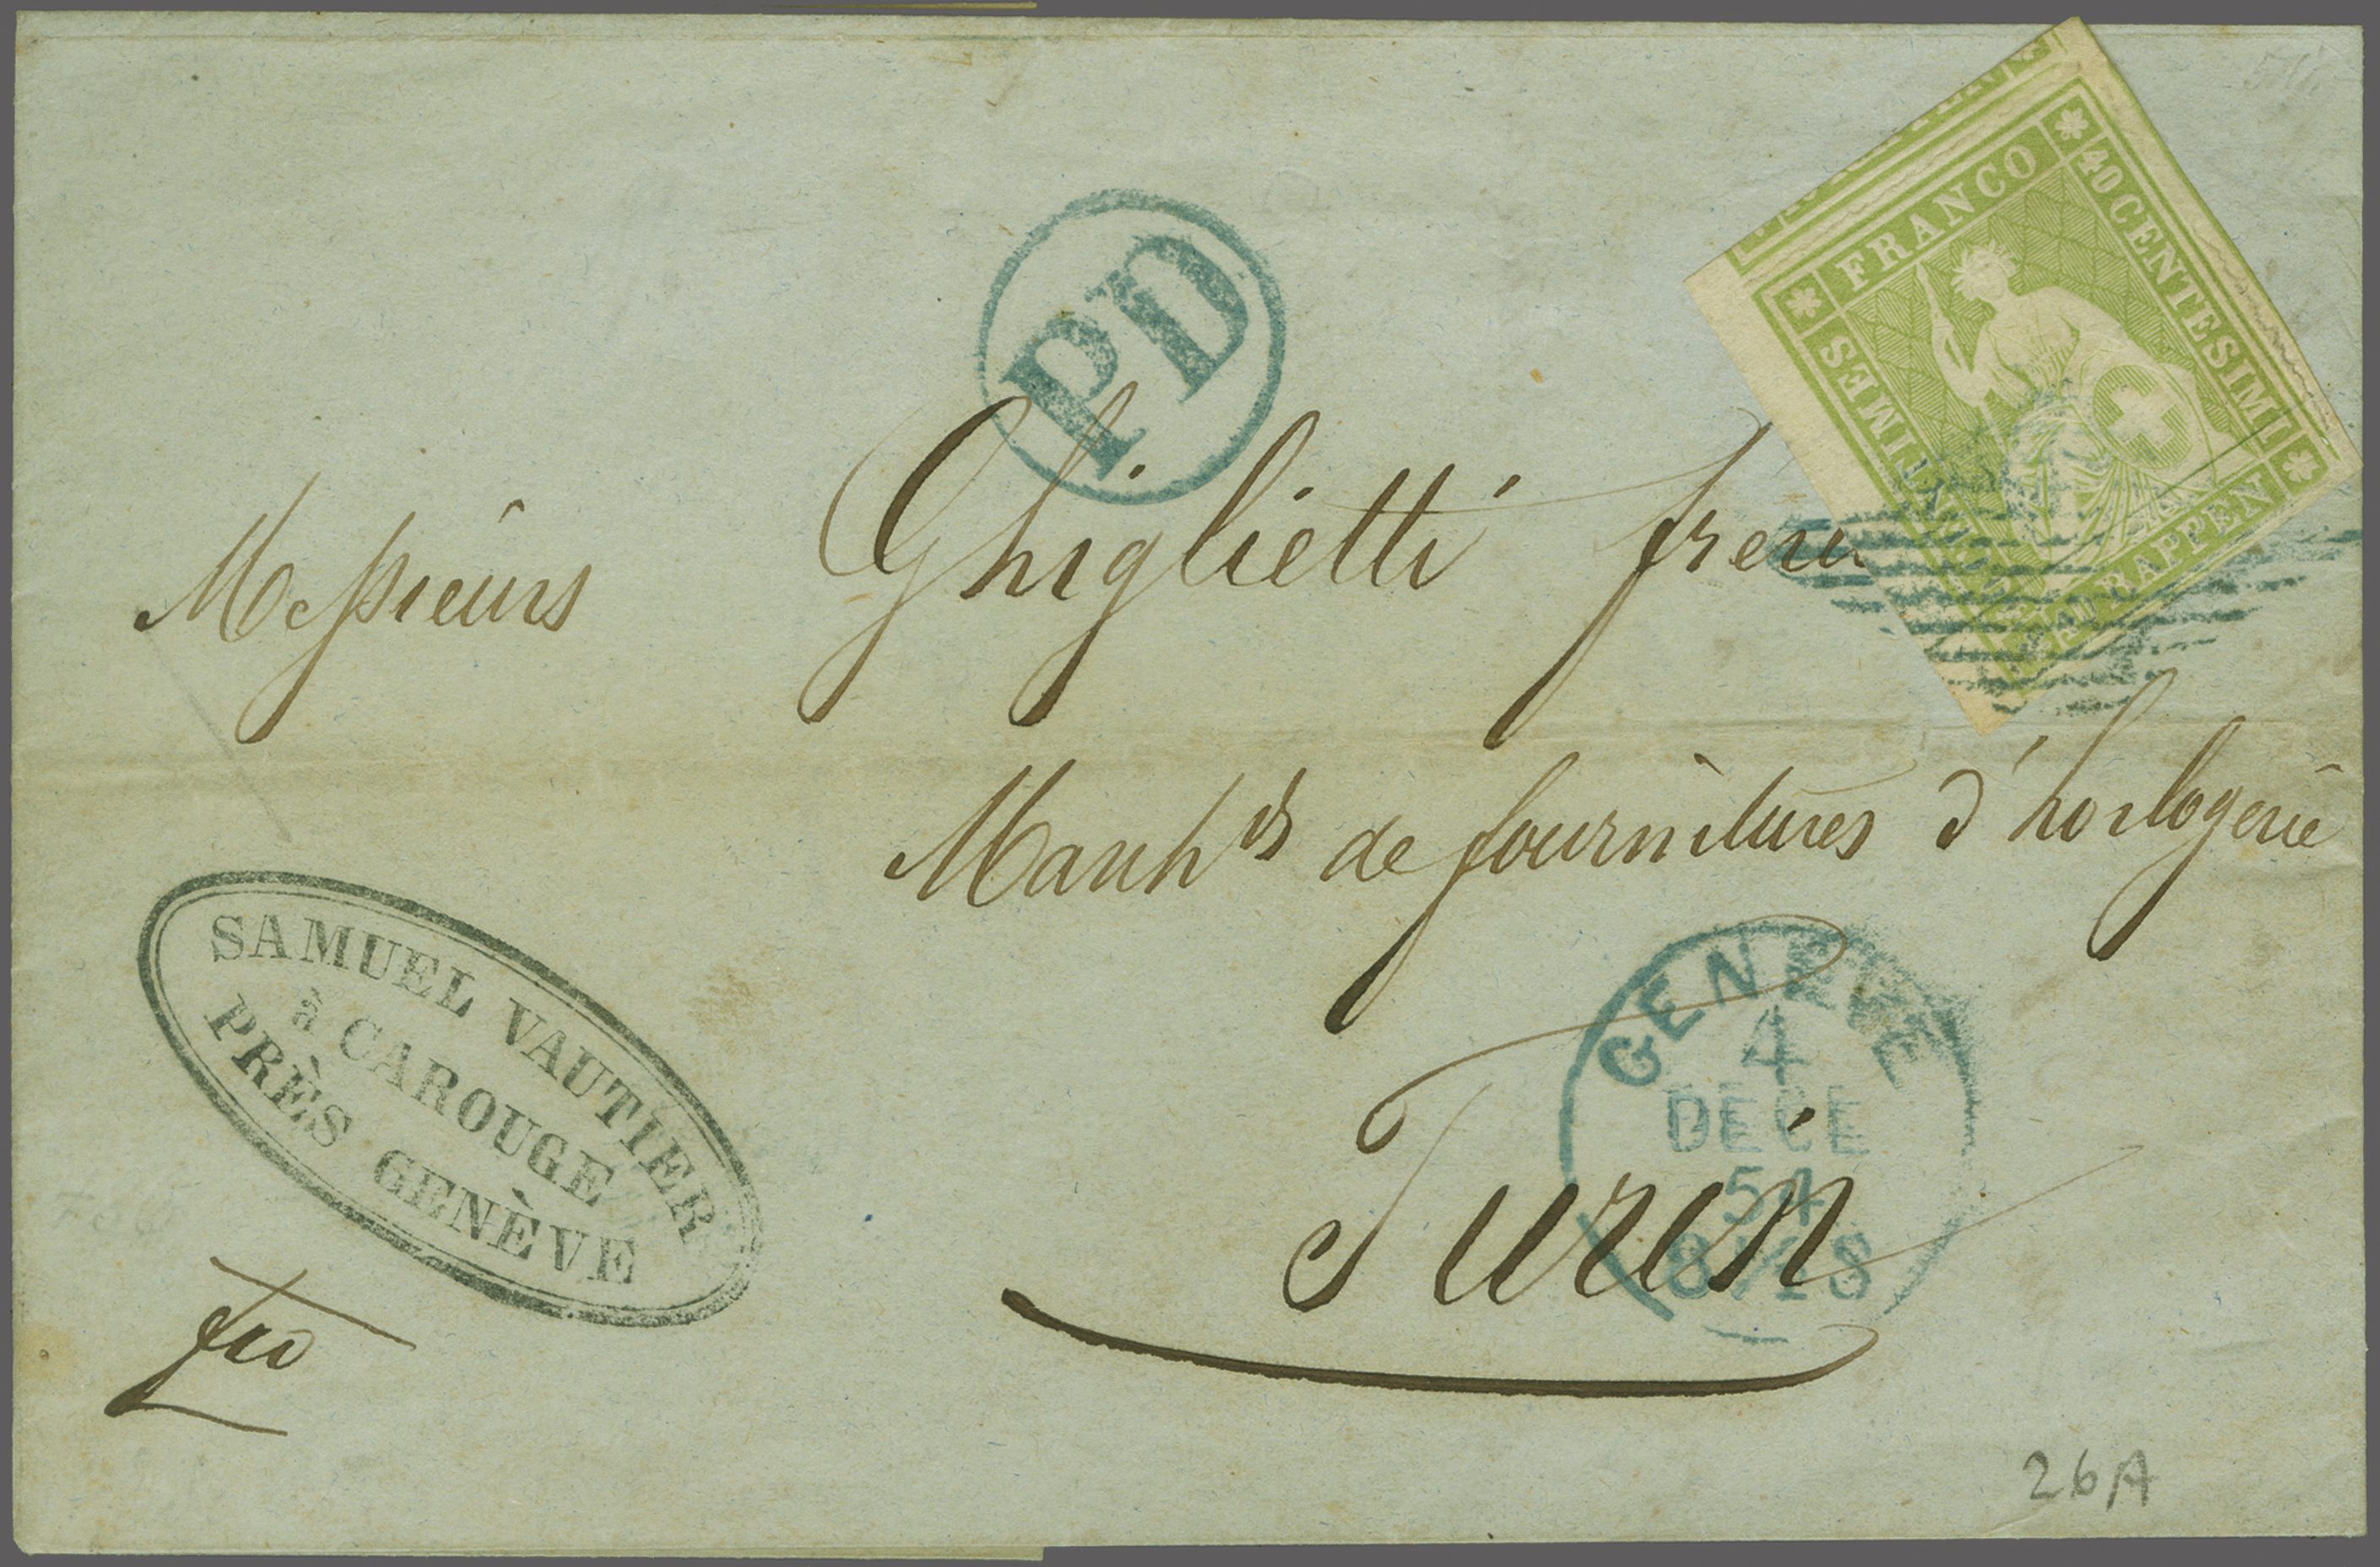 FRANCO
40 CENTESIMI
40 RAPPEN
CENTIMES
PD
Messieurs Ghiglietti frères
Marchds de fournitures d'horlogerie
Turin
GENÈVE
4
DECE
54
SAMUEL VAUTIER
à CAROUGE
PRÈS GENÈVE
fco
26A